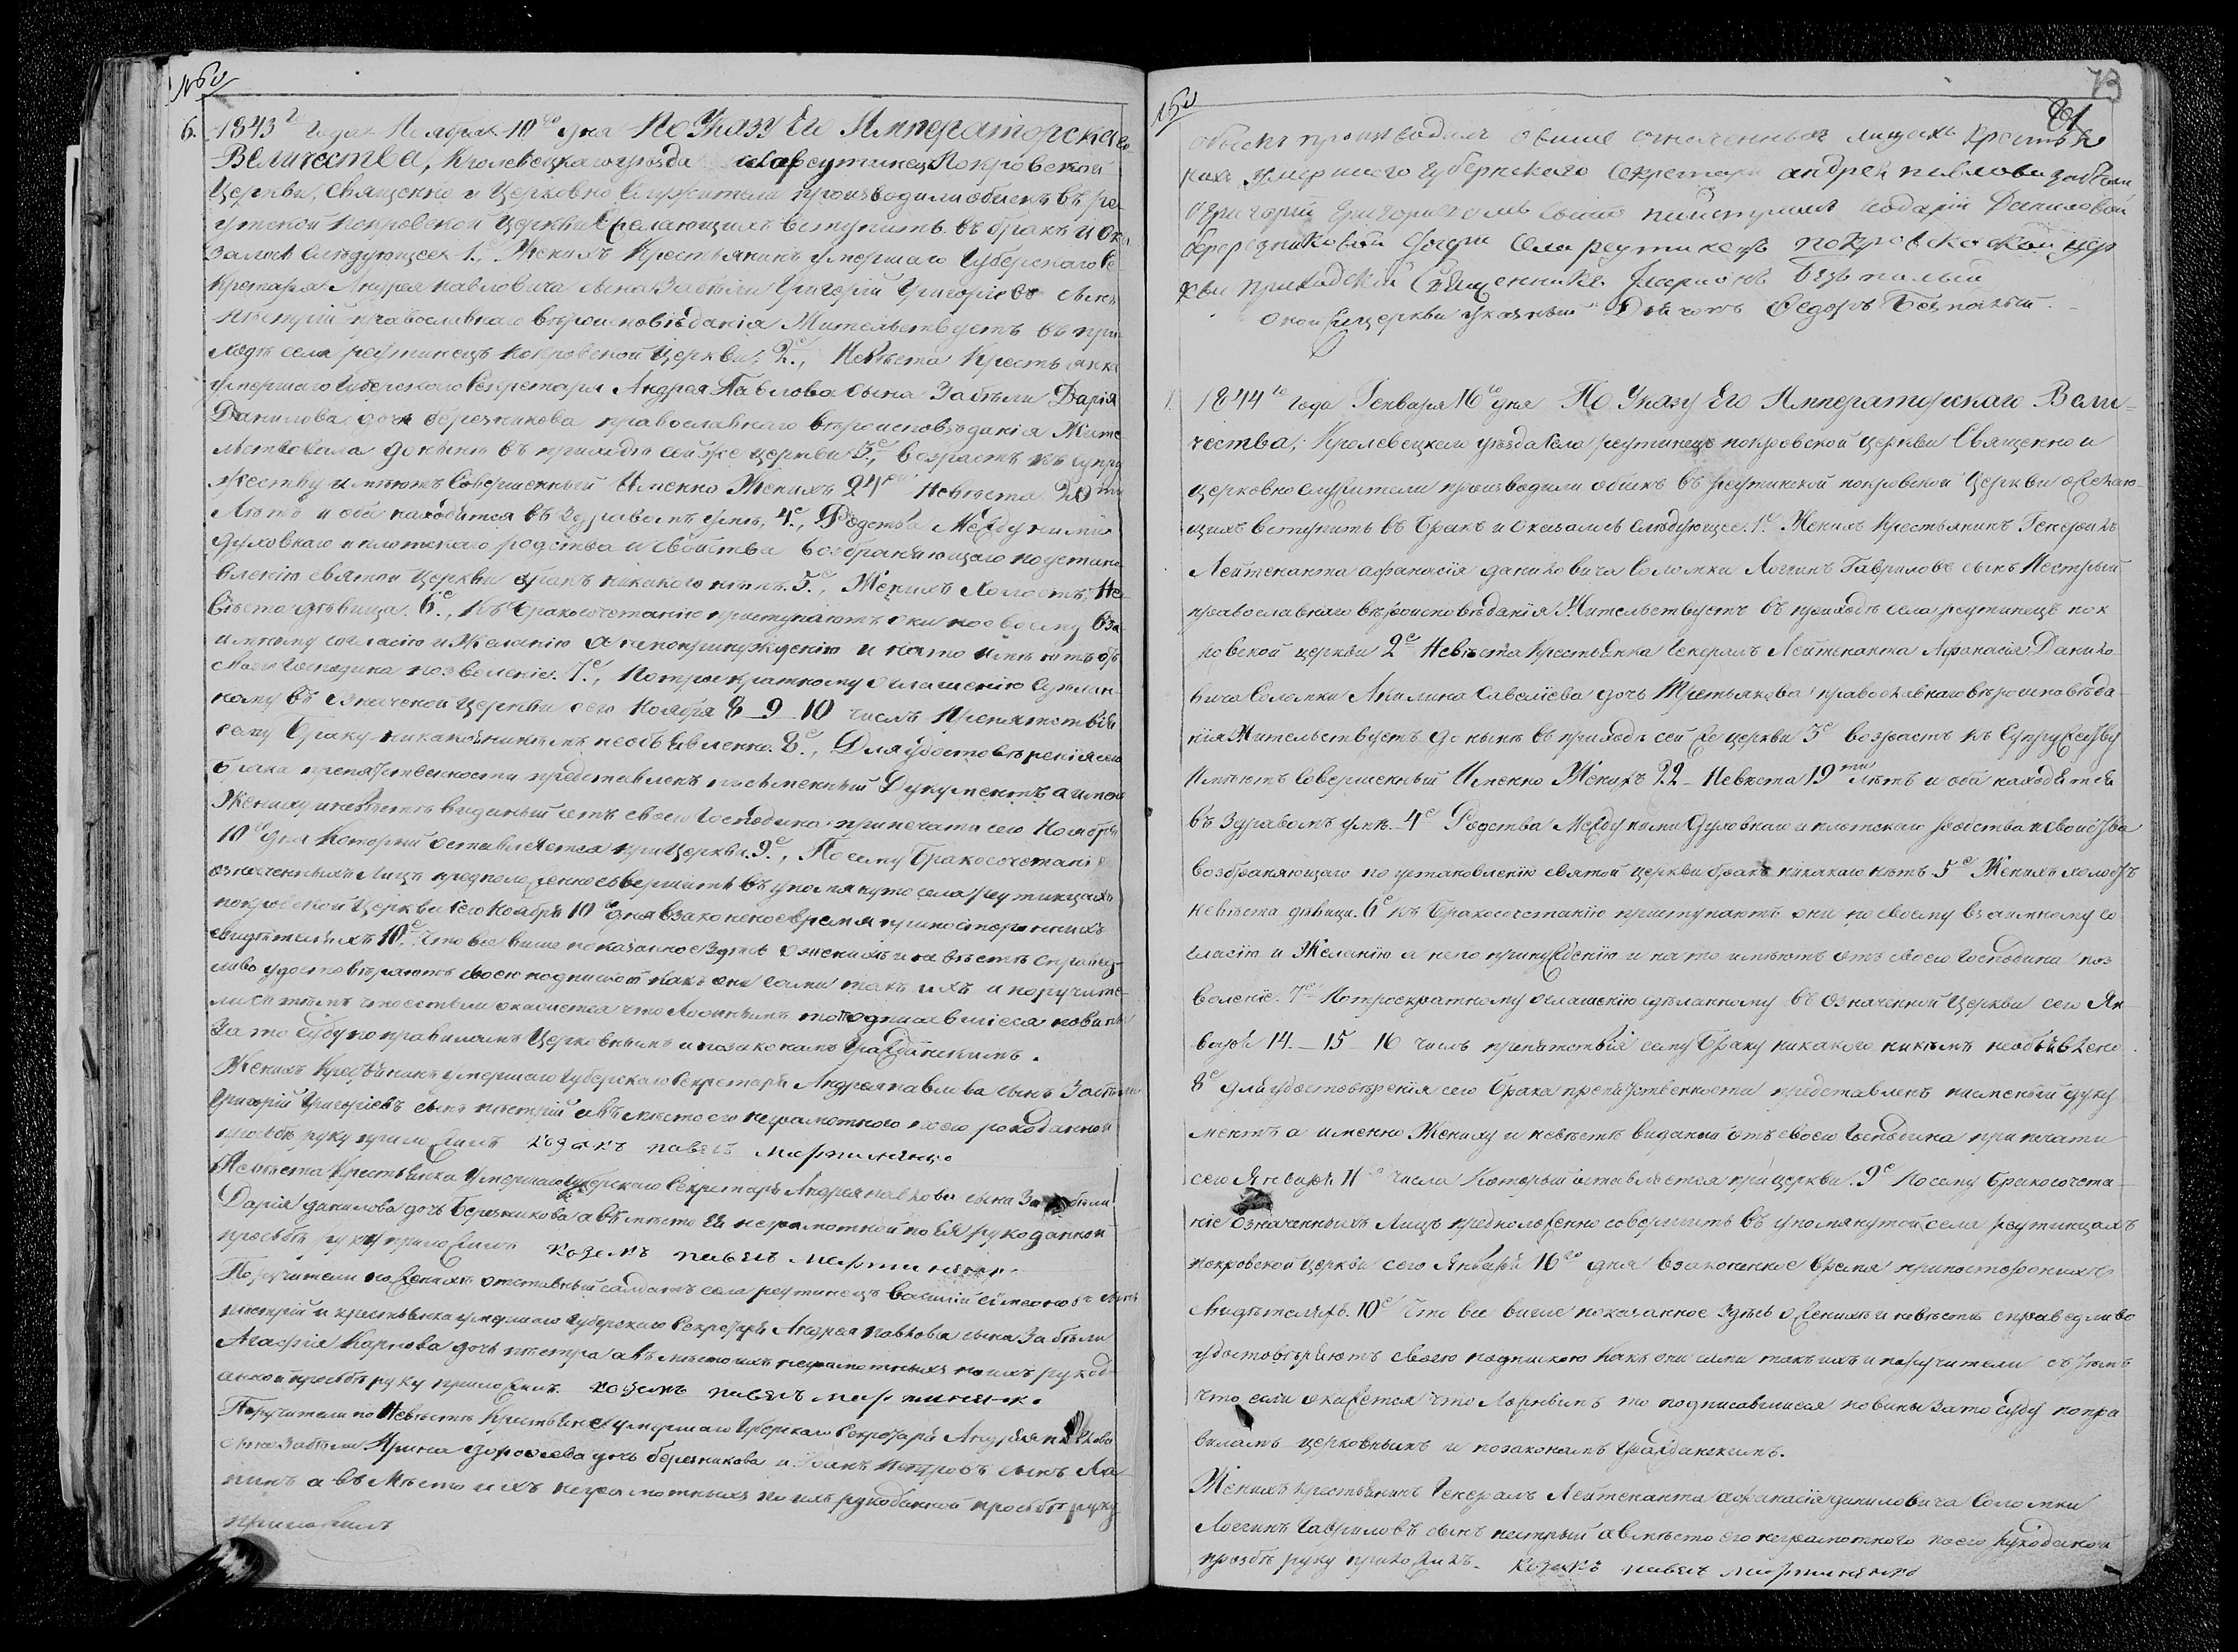 № 6й
6. 1843г года Ноября 10го дня По Указу Его Императорскаго
Величества, Кролевецкаго уезда села реутинец Покровской
Церкви, священно и церковно служители производили обыск в ре-
утинской покровской церкви желающих вступить в брак и ока
залось следующее 1е, Жених Крестьянин умершаго Губерскаго Се
кретаря Андрея павловича сына Забелы Григорий Григориев сын
пестрий православнаго вероисповедания Жительствует в при
ходе села реутинец покровской церкви. 2е, Невеста Крестьянка
умершаго Губерского Секретаря Андрея Павлова сына Забелы Дария
Данилова дочь березникова православнаго вероисповедания Жите
льствовала доныне в приходе сей же церкви 3е, возраст к супру
жеству имеют совершенный Именно Жених 24 Невеста 20ти
лет и оба находятся в здравом уме, 4е, Родства Между ними
духовнаго и плотскаго родства и свойства возбраняющаго по устано
влению святой церкви брак никакого нет. 5е, Жених холост, Не
веста девица. 6е, К бракосочетанию приступают они по своему вза
имному согласию и Желанию а не по принуждению и на то имеют от
своего господина позволение. 7е, По троекратному оглашению сделан-
ному в означеной церкви сего Ноября 8_9_10 числ препятствия
сему браку никакой никем необъявленно. 8е, Для удостоверения сего
брака препятственности представлен письменный Документ а имено
Жениху и невесте виданый от своего Господина при печати сего Ноября
10го дня Которий оставляется при церкви. 9е, По сему бракосочетание
означенных лиц предположенно совершить в упомянуто села реутинцах
покровской церкви сего Ноября 10го дня взаконеное время при посторонних
свидетелях 10е, Что все више показанное здесь о женихе и невесте справед-
ливо удостоверяют своею подпискою как они сами так их и поручите-
ли с тем что естьли окажется что Ложным то подписавшиеся повинны
за то суду по правилам Церковным и по законам Гражданским.
Жених крестьянин умершаго Губерскаго Секретаря Андрея павлова сына Забелы
Григорий Григориев сын пестрий а вместо его неграмотного по его рукоданной
прозбе руку приложил козак павел мартиненко
Невеста Крестьянка умершаго Губерскаго Секретаря Андрея павлова сына Забелы
Дария данилова дочь березникова а вместо Ея неграмотной по Ея рукоданной
прозбе руку приложил козак павел мартиненко
Поручители по Жениху отставный салдат села реутинец василий симеонов сын
пестрий и крестьянка умершаго Губерскаго Секретаря Андрея павлова сына Забелы
Агафия Карпова дочь пестра а вместо их неграмотных по их рукод
анной прозбе руку приложил. козак павел мартиненко.
Поручители по Невесте Крестьяне умершаго Губерскаго Секретаря Андрея павлова
сина Забелы Ирина дорофеева дочь березникова и Иван петров сын Ля
пин а в место их неграмотных по их рукоданной прозбе руку
приложил
№ 6й
73
81
обыск производил овише означенных лицах крестья
нах умершаго губернского секретаря андрей павлова забели
Григорий григориевом сыном пийстрим и дарии Даниловой
березниковой дочери села реутинец покровской цер
кви приходской священник Иларион Безпалый
оной же церкви указный Дячок Федор Безпалый
1. 1844го года Генваря 16го дня По Указу Его Императорскаго Вели-
чества; Кролевецкаго уезда села реутинец покровской церкви Священно и
церковно служители производили обиск в реутинской покровской Церкви о желаю-
щих вступить в Брак и оказалось следующее. 1е Жених Крестьянин Генерал
Лейтенанта афанасия даниловича Соломки Логгин Гаврилов сын Пестрый
православнаго вероисповедания Жительствует в приходе села реутинец пок
ровской церкви 2е Невеста Крестьянка Генерал Лейтенанта Афанасия Данило
вича Соломки Акилина Савелиева дочь Третьякова православнаго вероисповеда
ния Жительствует доныне в приходе сей же церкви 3е возраст к супружеству
Имеют совершенный Именно Жених 22 Невеста 19ти лет и оба находятся
в здравом уме. 4е Родства Между ними духовнаго и плотскаго родства и свойства
возбраняющаго по установлению святой церкви брак никакаго нет 5е Жених холост
невеста девица. 6е к бракосочетанию приступают они по своему взаимному со
гласию и Желанию а не по принуждению и на то имеют от своего господина поз
воление. 7е По троекратному оглашению сделанному в означенной Церкви сего Ян
варя 14. _ 15 _ 16 числ препятствия сему браку никакого никем необъявлено
8е для удостоверения сего брака препятственности представлен писменый доку
мент а именно Жениху и невесте виданый от своего Господина при печати
сего Января 11го числа Который оставляется при церкви. 9е По сему бракосочета-
ние означенных лиц предположенно совершить в упомянутой села реутинцах
покровской Церкви сего Января 16го дня взаконенное время при посторонних
свидетелях. 10е Что все више показанное здесь о Женихе и невесте справедливо
удостоверяют своею подпискою как они сами так их и поручители с тем
что если окажется что Ложным то подписавшиеся повины за то суду по пра
вилам церковным и по законам Гражданским.
Жених крестьянин Генерал Лейтенанта афанасия даниловича Соломки
Логгин Гаврилов сын пестрый а вместо его неграмотного по его рукоданой
прозбе руку приложил. козак павел мартиненко